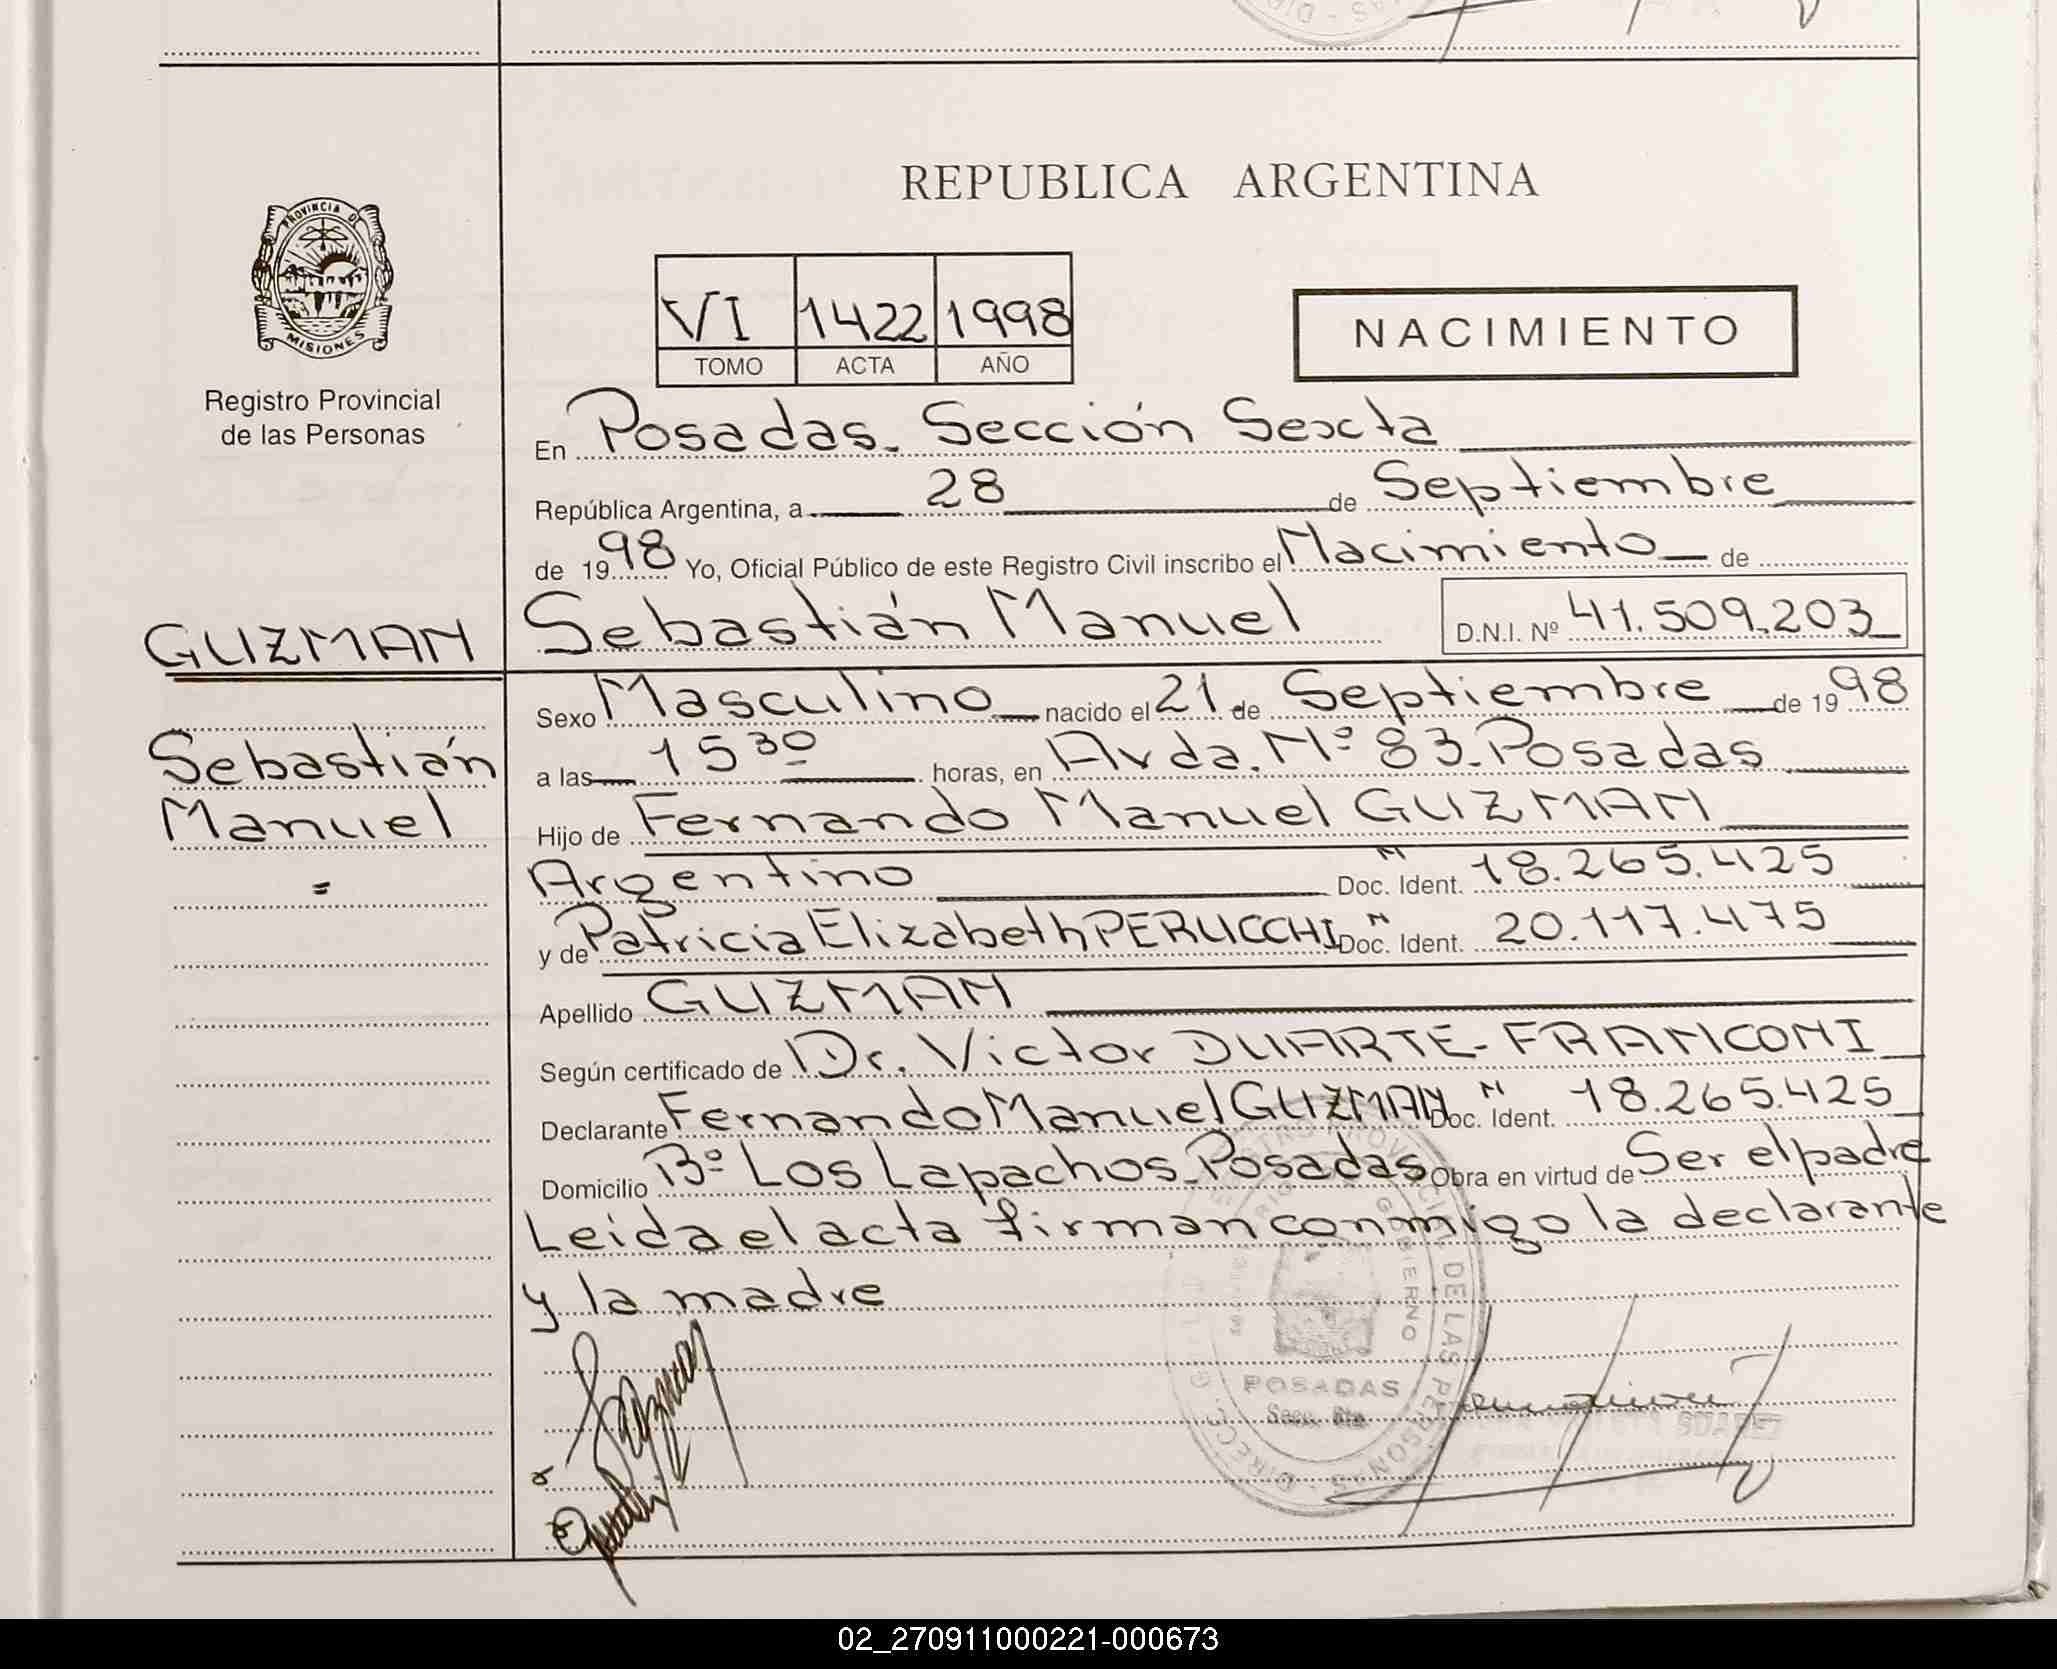 REPUBLICA ARGENTINA
PROVINCIA DE MISIONES
Registro Provincial
de las Personas
VI 1422 1998
TOMO ACTA AÑO
NACIMIENTO
En Posadas. Sección Sexta
República Argentina, a 28 de Septiembre
de 1998 Yo, Oficial Público de este Registro Civil inscribo el Nacimiento de
GUZMAN Sebastián Manuel D.N.I. Nº 41.509.203
Sexo Masculino nacido el 21 de Septiembre de 1998
Sebastián
a las 15 30 horas, en Avda. Nº 83. Posadas
Manuel
Hijo de Fernando Manuel GUZMAN
Argentino Doc. Ident. N 18.265.425
y de Patricia Elizabeth PERUCCHI Doc. Ident. N 20.117.475
Apellido GUZMAN
Según certificado de Dr. Victor DUARTE-FRANCONI
Declarante Fernando Manuel GUZMAN Doc. Ident. N 18.265.425
Domicilio Bº Los Lapachos. Posadas Obra en virtud de Ser el padre
Leida el acta firman conmigo la declarante
y la madre
POSADAS
02_270911000221-000673